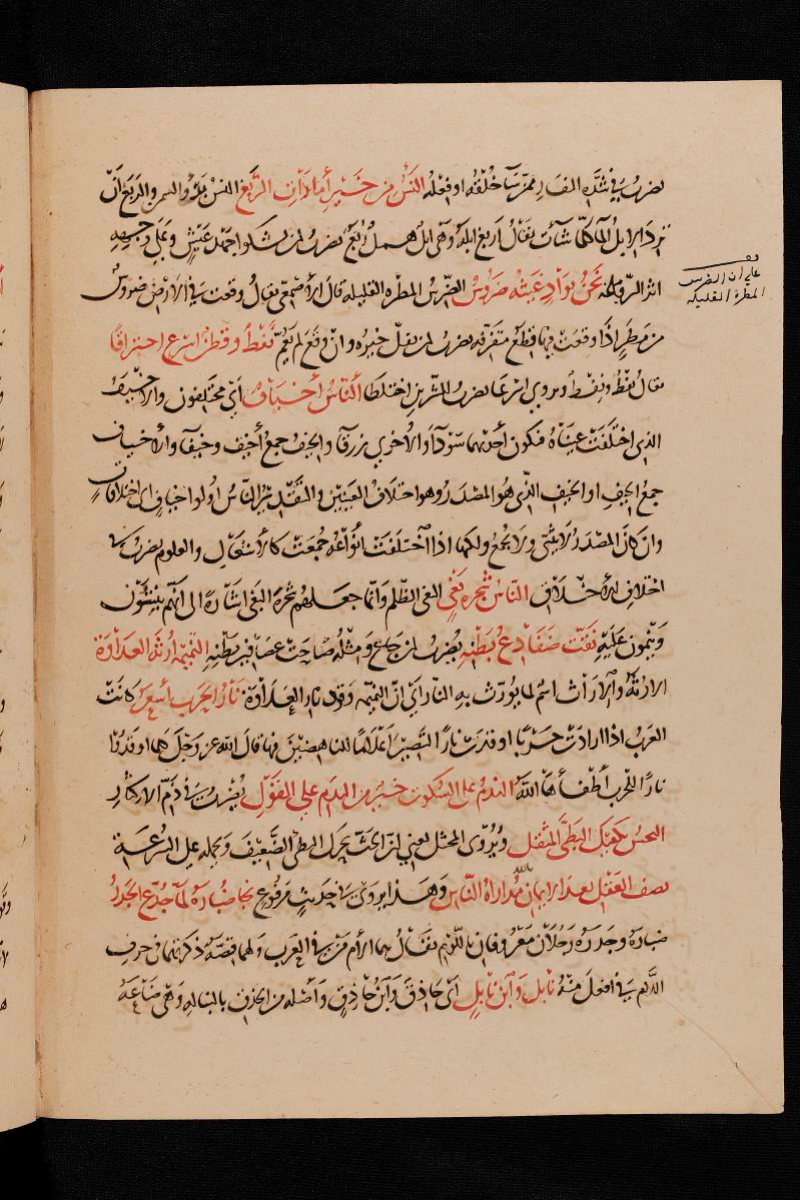 يضرب في شدة النفار ممن ساء خلقه او فعله النس من خير أمارات الربع النس السير والربع أن
ترد الابل الماء كلما شاءت يقال أربع ابله وهي ابل همل يضرب لمن يشكو اجهد عيش وعلى وجهه
اثر الرفاهية نحن بواد غيثه ضروس الضرس المطرة القليلة قال الأصمعي يقال وقعت في الأرض ضروس
من مطر إذا وقعت فيها قطع متفرقة يضرب لمن يقل خيره وان وقع لم يعم نفط وقطن أسرع احتراقا
يقال نفط ونفط ويروى اسرعا يضرب للشرين اختلطا الناس أخياف أي مختلفون والأخيف
الذي اختلفت عيناه فتكون أحدهما سوداء والأخرى زرقاء والخيف جمع أخيف وخيفاء والأخياف
جمع الخيف او الخيف الذي هو المصدر وهو اختلاف العينين والتقدير الناس اولوا أخياف اي اختلافات
وان كان المصدر لا يثنى ولا يجمع ولكنها اذا اختلفت أنواعه جمعت كالأشغال والعلوم يضرب في
اختلاف الأخلاق الناس شجرة بغي البغي الظلم وانما جعلهم شجرة البغي اشارة الى انهم ينبتون
وينمون عليه نقت ضفادع بطنه يضرب لمن جاع ومثله صاحت عصافير بطنه النميمة أرثة العداوة
الارثة والأراث اسم لما يورث به النار أي ان النميمة وقود نار العداوة نار الحرب أسعر كانت
العرب اذا ارادت حربا اوقدت نارا لتصير اعلاما للناهضين فيها قال الله عز وجل كلما اوقدوا
نارا للحرب أطفأها الله الندم على السكوت خير من الندم على القول يضرب في ذم الاكثار
النخس يكفيك البطيء المثقل ويروى المحثل يعني ان الحث يحرك البطيء الضعيف ويحمله على السرعة
نصف العقل بعد الايمان بالله مداراة الناس وهذا يروى في حديث مرفوع نجا ضبارة لما جدع الجدرة
ضبارة وجدرة رجلان معروفان باللؤم يقال هما الأم من في العرب ولهما قصة ذكرتها في حرف
اللام في أفعل منه نابل وابن نابل أي حاذق وابن حاذق وأصله من الحذق بالنبالة وهي صناعة
على ان الضرس
المطرة القليلة